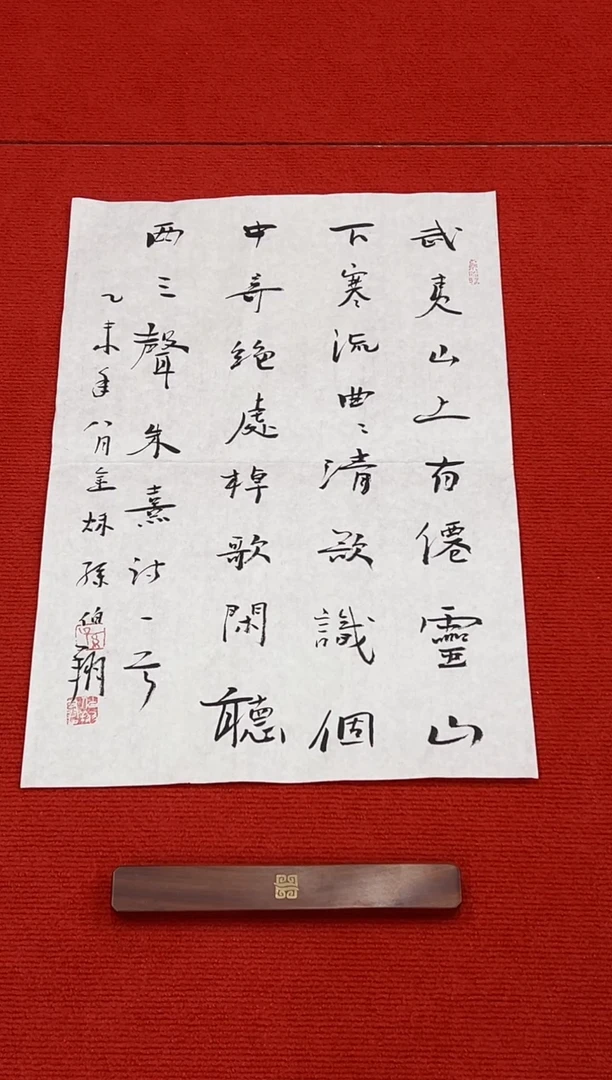 武夷山上有僊靈山
下寒流曲〻清欲識個
中奇絶處棹歌閑聽
西三聲朱熹詩一首
乙未年八月金秋孫伯翔